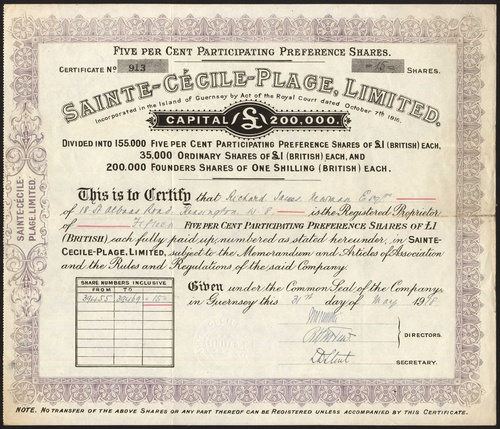 FIVE PER CENT PARTICIPATING PREFERENCE SHARES.
CERTIFICATE No 913 -15- SHARES.
SAINTE-CÉCILE-PLAGE, LIMITED.
Incorporated in the Island of Guernsey by Act of the Royal Court dated October 7th 1911.
CAPITAL £ 200.000.
DIVIDED INTO 155,000 FIVE PER CENT PARTICIPATING PREFERENCE SHARES OF £1 (BRITISH) EACH,
35,000 ORDINARY SHARES OF £1 (BRITISH) EACH, AND
200,000 FOUNDERS SHARES OF ONE SHILLING (BRITISH) EACH.
This is to Certify that Richard James Newman Esqr
of 18 St Albans Road, Kensington W 8 is the Registered Proprietor
of Fifteen FIVE PER CENT PARTICIPATING PREFERENCE SHARES OF £1
(BRITISH), each fully paid up, numbered as stated hereunder, in SAINTE-
CÉCILE-PLAGE, LIMITED, subject to the Memorandum and Articles of Association
and the Rules and Regulations of the said Company.
SHARE NUMBERS INCLUSIVE
FROM TO
39455 39469 - 15
Given under the Common Seal of the Company,
in Guernsey this 31st day of May 19
DIRECTORS.
SECRETARY.
SAINTE-CÉCILE-
PLAGE, LIMITED.
NOTE. NO TRANSFER OF THE ABOVE SHARES OR ANY PART THEREOF CAN BE REGISTERED UNLESS ACCOMPANIED BY THIS CERTIFICATE.